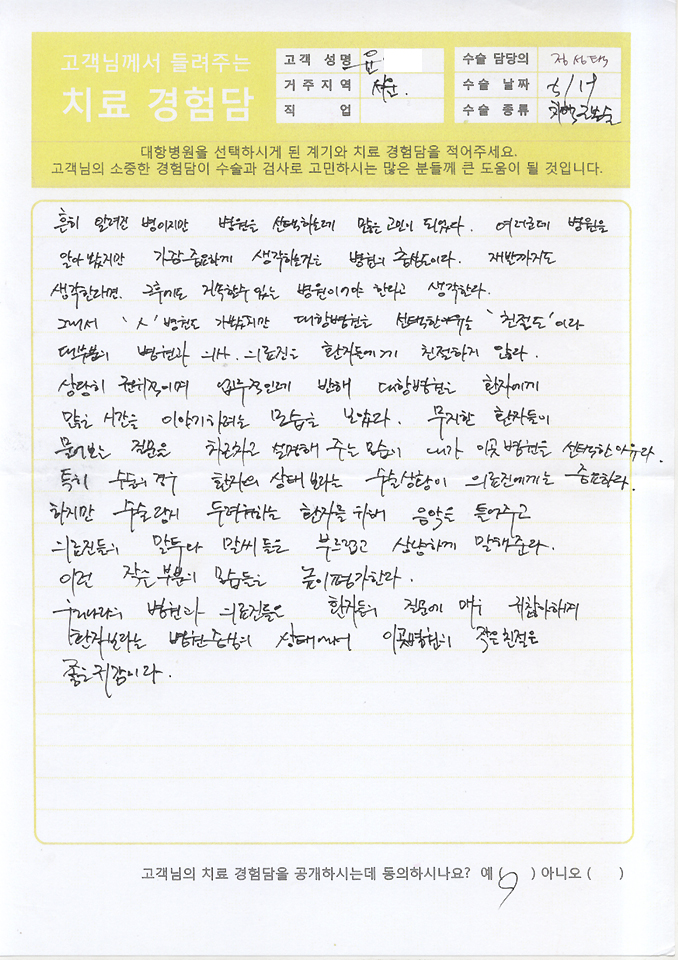 고객님께서 들려주는
치료 경험담
고객 성명 윤
거주지역 서울.
직 업
수술 담당의
수술 날짜 5/19
수술 종류
대항병원을 선택하시게 된 계기와 치료 경험담을 적어주세요.
고객님의 소중한 경험담이 수술과 검사로 고민하시는 많은 분들께 큰 도움이 될 것입니다.
흔히 알려진 병이지만 병원을 선택하는데 많은 고민이 되었다. 여러군데 병원을
알아 봤지만 가장 중요하게 생각하는것은 병원의 층실도이다. 재발까지도
생각한다면. 그후에도 지속할수 있는 병원이어야 한다고 생각한다.
그래서 'A' 병원도 가봤지만 대항병원을 선택한 이유는 '친절도'이다
대부분의 병원과 의사. 의료진은 환자들에게 친절하지 않다.
상당히 권위적이며 업무적인데 반해 대항병원은 환자에게
많은 시간을 이야기하려는 모습을 보았다. 무지한 환자들이
물어보는 질문을 차근차근 설명해 주는 모습이 내가 이곳 병원을 선택한 이유다.
특히 수술의 경우 환자의 상태보다는 수술상황이 의료진에게는 중요하다.
하지만 수술 두려워하는 환자를 위해 음악을 틀어주고
의료진들의 말투나 말씨 들은 부드럽고 상냥하게 말해준다.
이런 작은 부분의 모습들을 높이평가한다.
우리나라의 병원과 의료진들은 환자들의 질문에 매우 귀찮아하며
환자보다는 병원중심의 상태에서 이곳병원의 작은 친절은
좋은 귀감이다.
고객님의 치료 경험담을 공개하시는데 동의하시나요? 예 ( ) 아니오 ( )